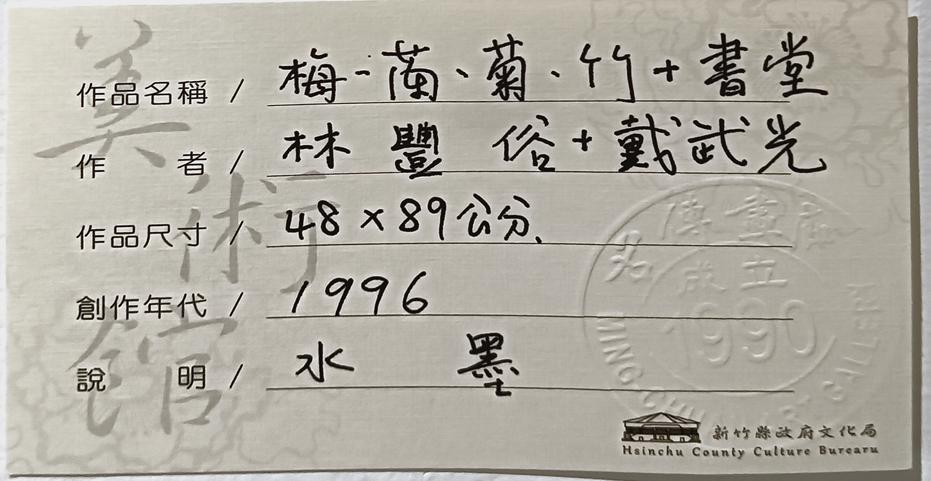 作品名稱 / 梅、蘭、菊、竹+書堂
作 者 / 林豐俗+戴武光
作品尺寸 / 48×89公分.
創作年代 / 1996
說 明 / 水 墨
美術館
成立
1990
新竹縣政府文化局
Hsinchu County Culture Burearu